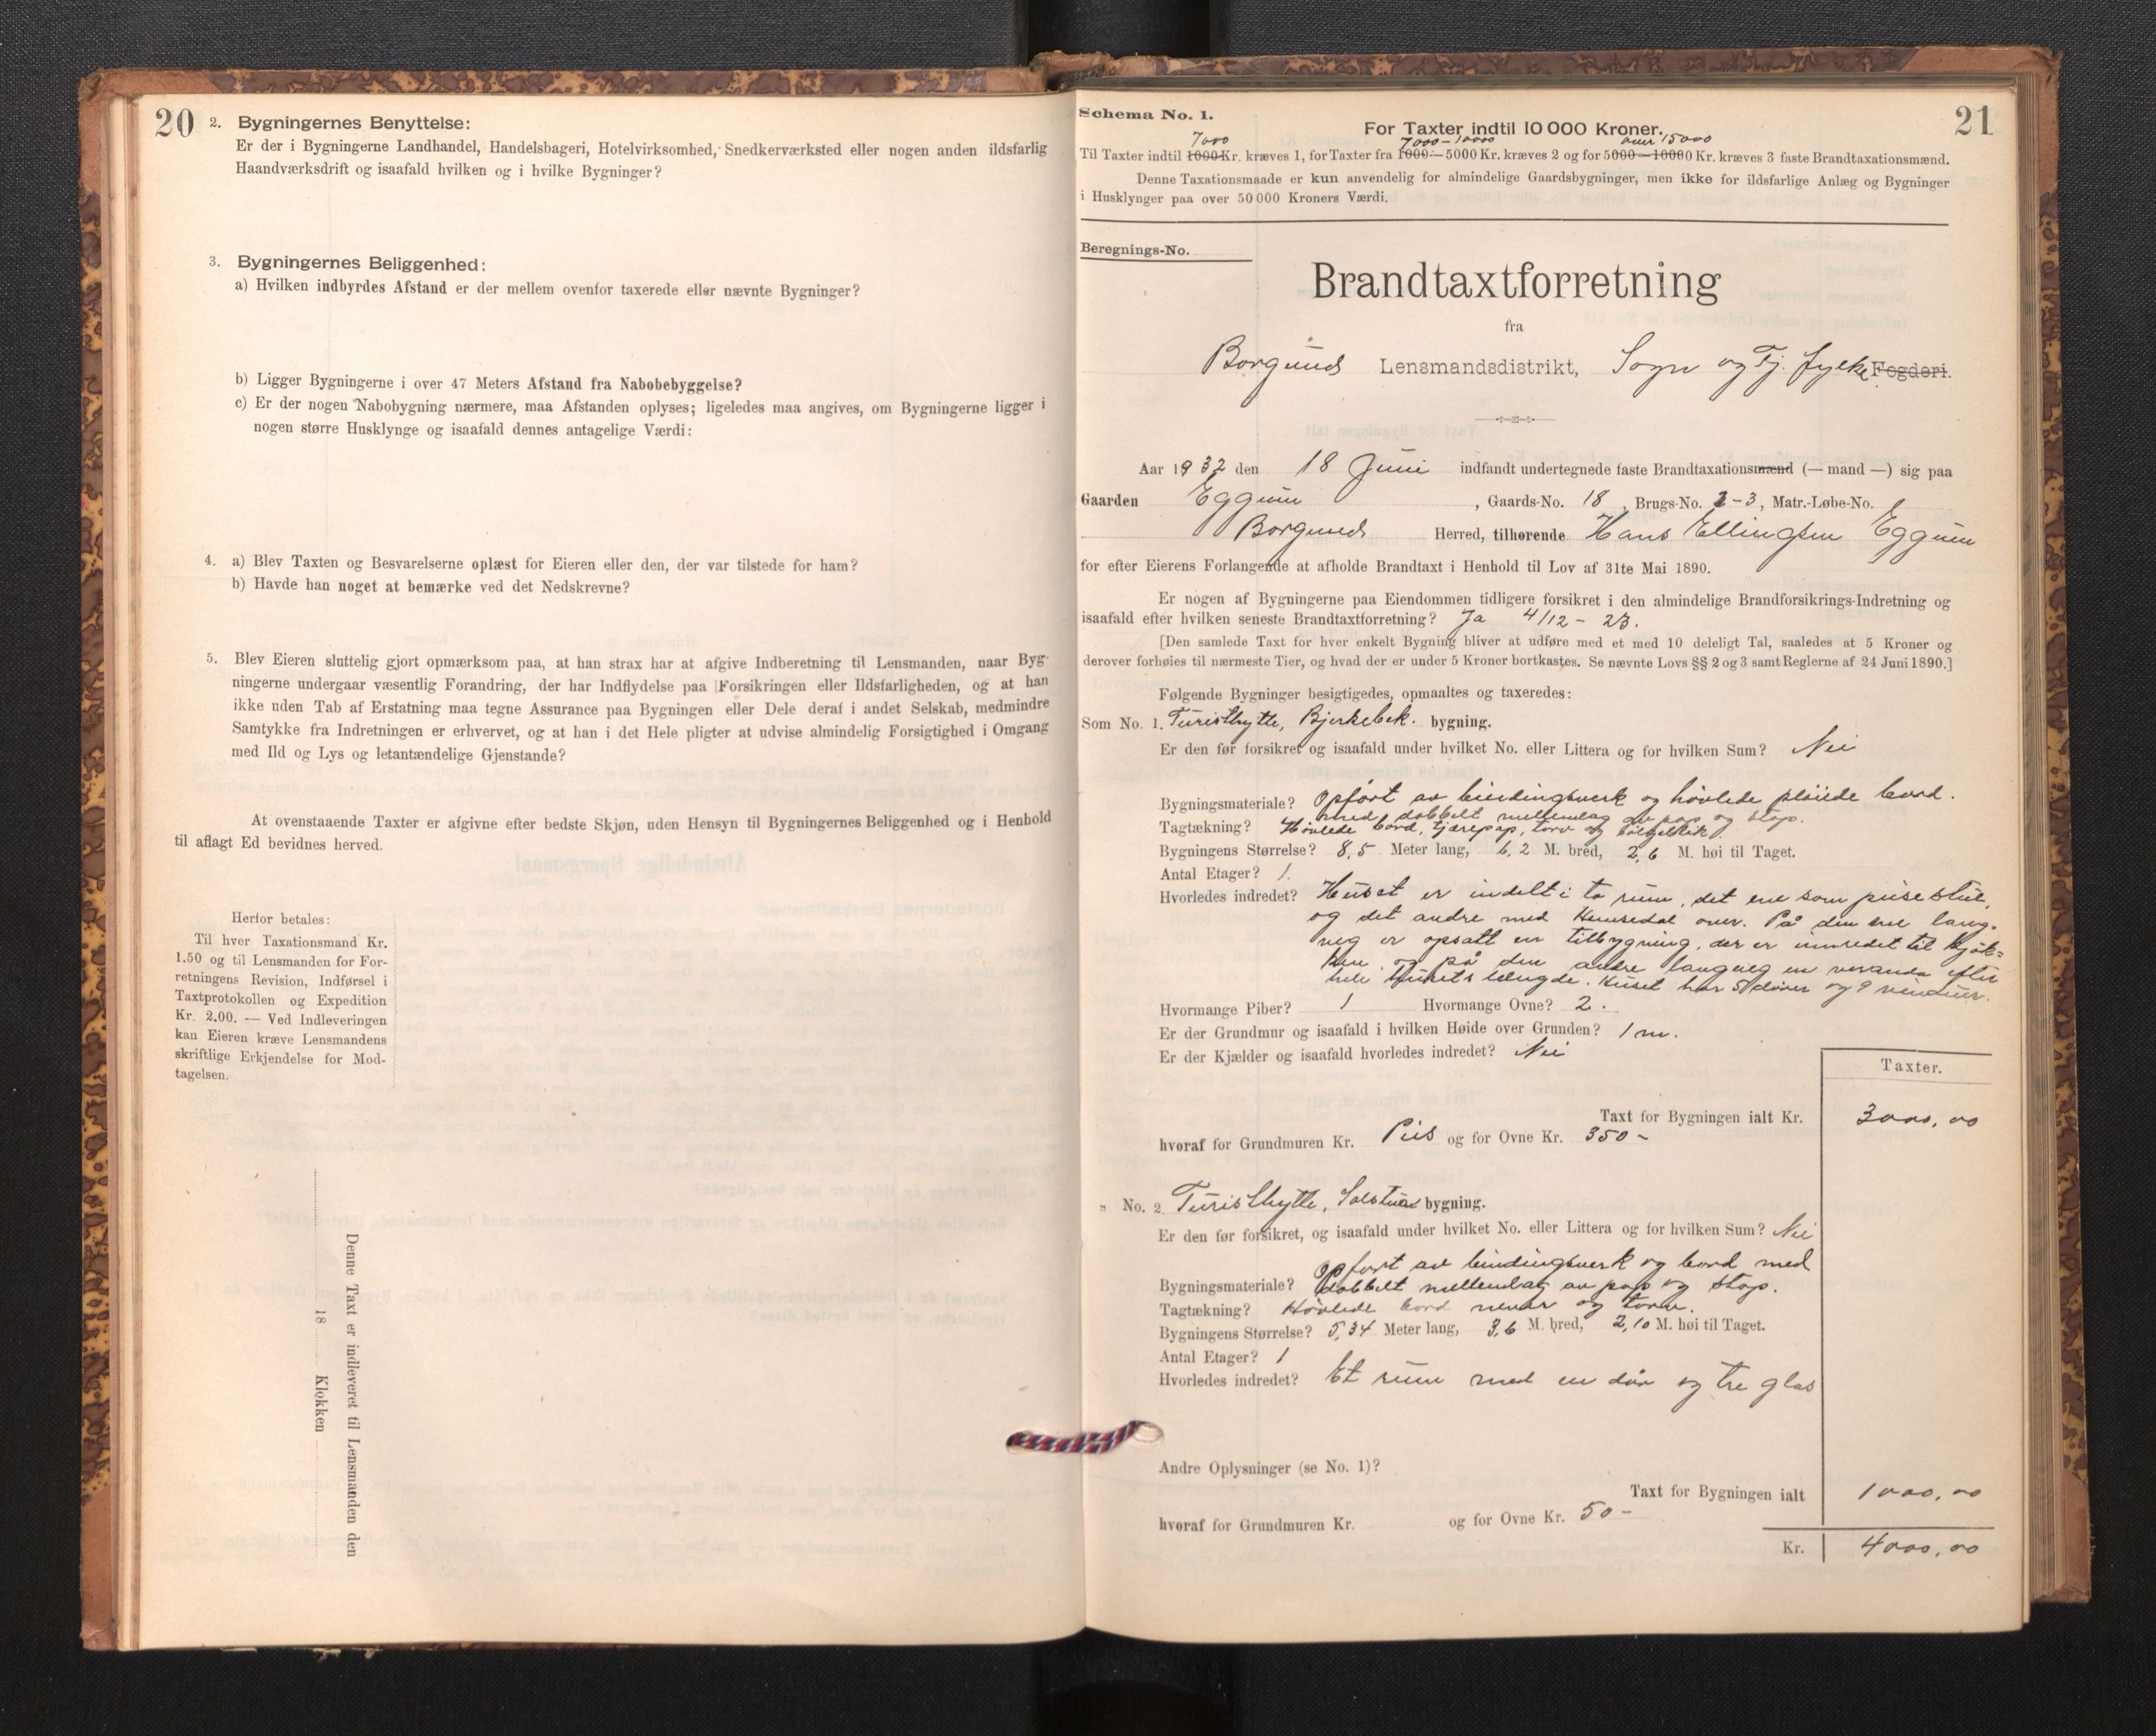 20
2. Bygningernes Benyttelse:
Er der i Bygningerne Landhandel, Handelsbageri, Hotelvirksomhed, Snedkerværksted eller nogen anden ildsfarlig
Haandværksdrift og isaafald hvilken og i hvilke Bygninger?
3. Bygningernes Beliggenhed:
a) Hvilken indbyrdes Afstand er der mellem ovenfor taxerede eller nævnte Bygninger?
b) Ligger Bygningerne i over 47 Meters Afstand fra Nabobebyggelse?
c) Er der nogen Nabobygning nærmere, maa Afstanden oplyses; ligeledes maa angives, om Bygningerne ligger i
nogen større Husklynge og isaafald dennes antagelige Værdi:
4. a) Blev Taxten og Besvarelserne oplæst for Eieren eller den, der var tilstede for ham?
b) Havde han noget at bemærke ved det Nedskrevne?
5. Blev Eieren sluttelig gjort opmærksom paa, at han strax har at afgive Indberetning til Lensmanden, naar Byg-
ningerne undergaar væsentlig Forandring, der har Indflydelse paa Forsikringen eller Ildsfarligheden, og at han
ikke uden Tab af Erstatning maa tegne Assurance paa Bygningen eller Dele deraf i andet Selskab, medmindre
Samtykke fra Indretningen er erhvervet, og at han i det Hele pligter at udvise almindelig Forsigtighed i Omgang
med Ild og Lys og letantændelige Gjenstande?
At ovenstaaende Taxter er afgivne efter bedste Skjøn, uden Hensyn til Bygningernes Beliggenhed og i Henhold
til aflagt Ed bevidnes herved.
Herfor betales:
Til hver Taxationsmand Kr.
1.50 og til Lensmanden for For-
retningens Revision, Indførsel i
Taxtprotokollen og Expedition
Kr. 2.00. — Ved Indleveringen
kan Eieren kræve Lensmandens
skriftlige Erkjendelse for Mod-
tagelsen.
Denne Taxt er indleveret til Lensmanden den
18 Klokken
21
Schema No. 1.
For Taxter indtil 10 000 Kroner.
7000 7000-10000 over 15000
Til Taxter indtil 1000 Kr. kræves 1, for Taxter fra 1000—5000 Kr. kræves 2 og for 5000—10000 Kr. kræves 3 faste Brandtaxationsmænd.
Denne Taxationsmaade er kun anvendelig for almindelige Gaardsbygninger, men ikke for ildsfarlige Anlæg og Bygninger
i Husklynger paa over 50 000 Kroners Værdi.
Beregnings-No.
Brandtaxtforretning
fra
Borgund Lensmandsdistrikt, Sogn og Fj. fylke Fogderi.
Aar 1932 den 18 Juni indfandt undertegnede faste Brandtaxationsmænd (— mand —) sig paa
Gaarden Eggum, Gaards-No. 18, Brugs-No. 2-3, Matr.-Løbe-No.
Borgund Herred, tilhørende Hans Ellingsen Eggum
for efter Eierens Forlangende at afholde Brandtaxt i Henhold til Lov af 31te Mai 1890.
Er nogen af Bygningerne paa Eiendommen tidligere forsikret i den almindelige Brandforsikrings-Indretning og
isaafald efter hvilken seneste Brandtaxtforretning? Ja 4/12 - 23.
[Den samlede Taxt for hver enkelt Bygning bliver at udføre med et med 10 deleligt Tal, saaledes at 5 Kroner og
derover forhøies til nærmeste Tier, og hvad der er under 5 Kroner bortkastes. Se nævnte Lovs §§ 2 og 3 samt Reglerne af 24 Juni 1890.]
Følgende Bygninger besigtigedes, opmaaltes og taxeredes:
Som No. 1. Turisthytte, Bjerkebek. bygning.
Er den før forsikret og isaafald under hvilket No. eller Littera og for hvilken Sum? Nei
Bygningsmateriale? Opført av bindingsverk og høvlede pløiede bord.
med dobbelt mellemlag av pap og stop.
Tagtækning? Høvlede bord, tjærepap, torv og
Bygningens Størrelse? 8,5 Meter lang, 6,2 M. bred, 2,6 M. høi til Taget.
Antal Etager? 1.
Hvorledes indredet? Huset er indelt i to rum, det ene som peisestue,
og det andre med Hemsedal over. På den ene lang-
veg er opsatt en tilbygning, der er innredet til kjøk-
ken og på den andre langveg en veranda efter
hele husets længde. Huset har 5 dører og 9 vinduer.
Hvormange Piber? 1 Hvormange Ovne? 2.
Er der Grundmur og isaafald i hvilken Høide over Grunden? 1 m.
Er der Kjælder og isaafald hvorledes indredet? Nei
Taxter.
Taxt for Bygningen ialt Kr. 3000,00
hvoraf for Grundmuren Kr. Peis og for Ovne Kr. 350-
„ No. 2 Turisthytte, Solstua bygning.
Er den før forsikret, og isaafald under hvilket No. eller Littera og for hvilken Sum? Nei
Opført av bindingsverk og bord med
Bygningsmateriale? dobbelt mellemlag av pap og stop.
Tagtækning? Høvlede bord never og torv.
Bygningens Størrelse? 5,34 Meter lang, 3,6 M. bred, 2,10 M. høi til Taget.
Antal Etager? 1
Hvorledes indredet? Et rum med en dør og tre glas
Andre Oplysninger (se No. 1)?
Taxt for Bygningen ialt 1000,00
hvoraf for Grundmuren Kr. og for Ovne Kr. 50-
Kr. 4000,00